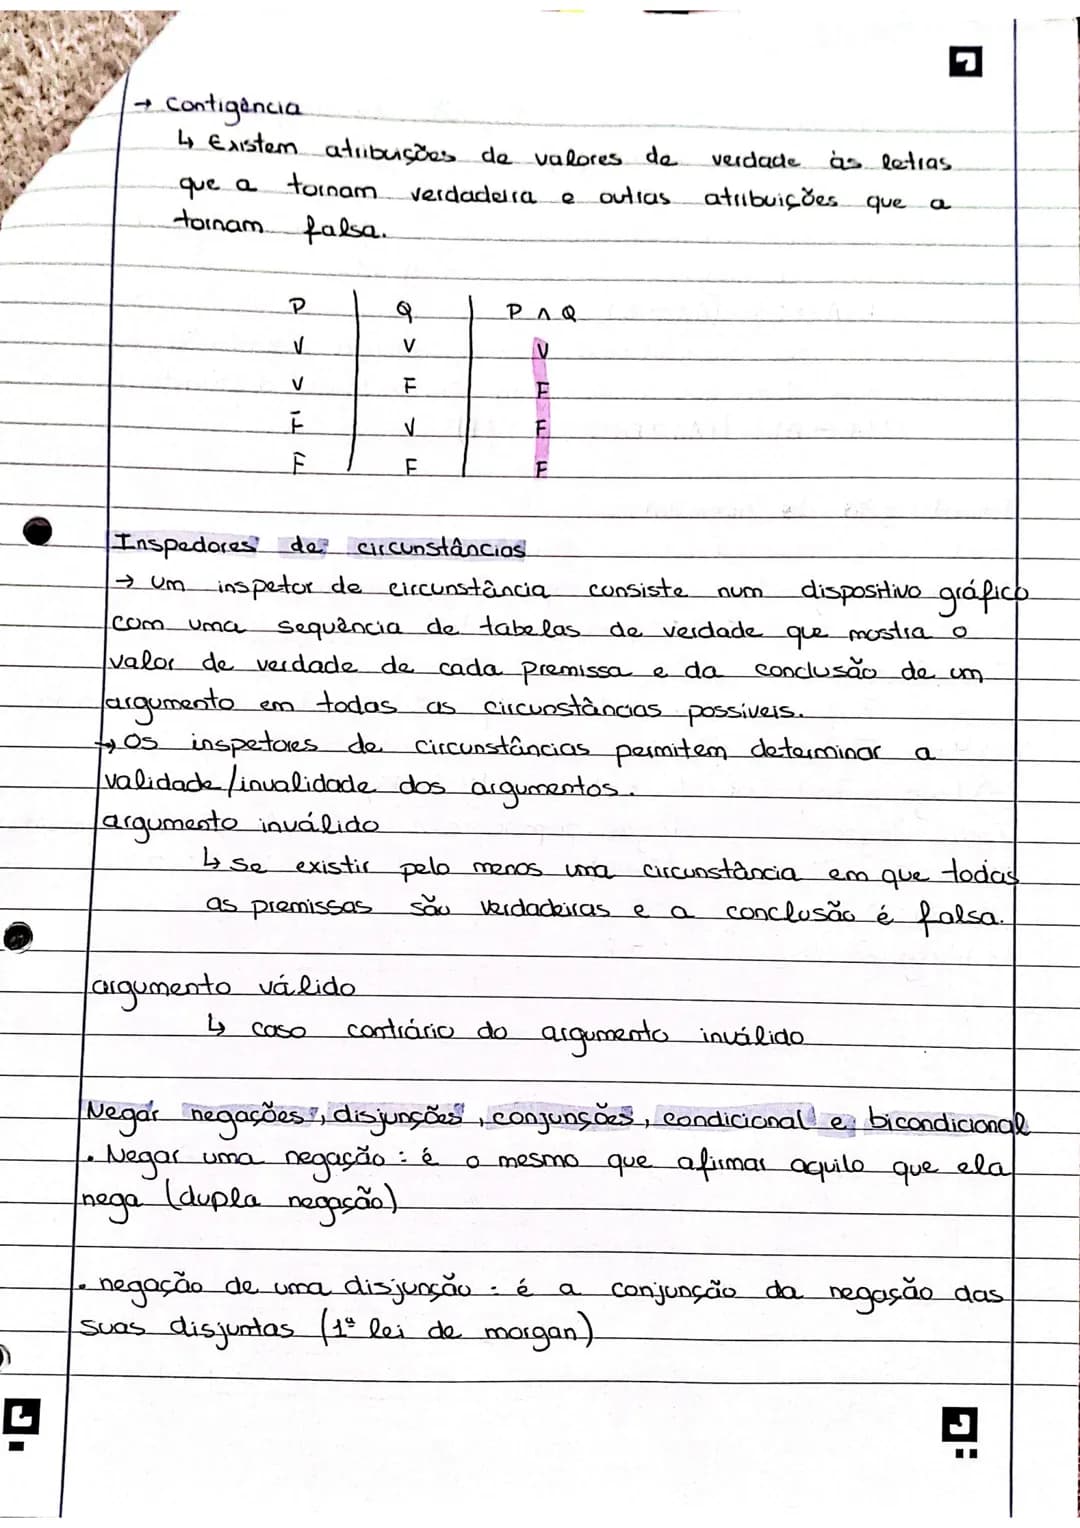 → Contigência
↳ Existem atribuições de valores de verdade às letras
que a tornam verdadeira e outras atribuições que a
tornam falsa.
P Q P ∧ Q
V V V
V F F
F V F
F F F
Inspedores de circunstâncias
→ um inspetor de circunstância consiste num dispositivo gráfico
com uma sequência de tabelas de verdade que mostra o
valor de verdade de cada premissa e da conclusão de um
argumento em todas as circunstâncias possíveis.
→ Os inspetores de circunstâncias permitem determinar a
validade/invalidade dos argumentos.
argumento inválido
↳ se existir pelo menos uma circunstância em que todas
as premissas são verdadeiras e a conclusão é falsa.
argumento válido
↳ caso contrário do argumento inválido
Negar negações, disjunções, conjunções, condicional e bicondicional
. Negar uma negação: é o mesmo que afirmar aquilo que ela
nega (dupla negação)
. negação de uma disjunção: é a conjunção da negação das
suas disjuntas (1ª lei de morgan)